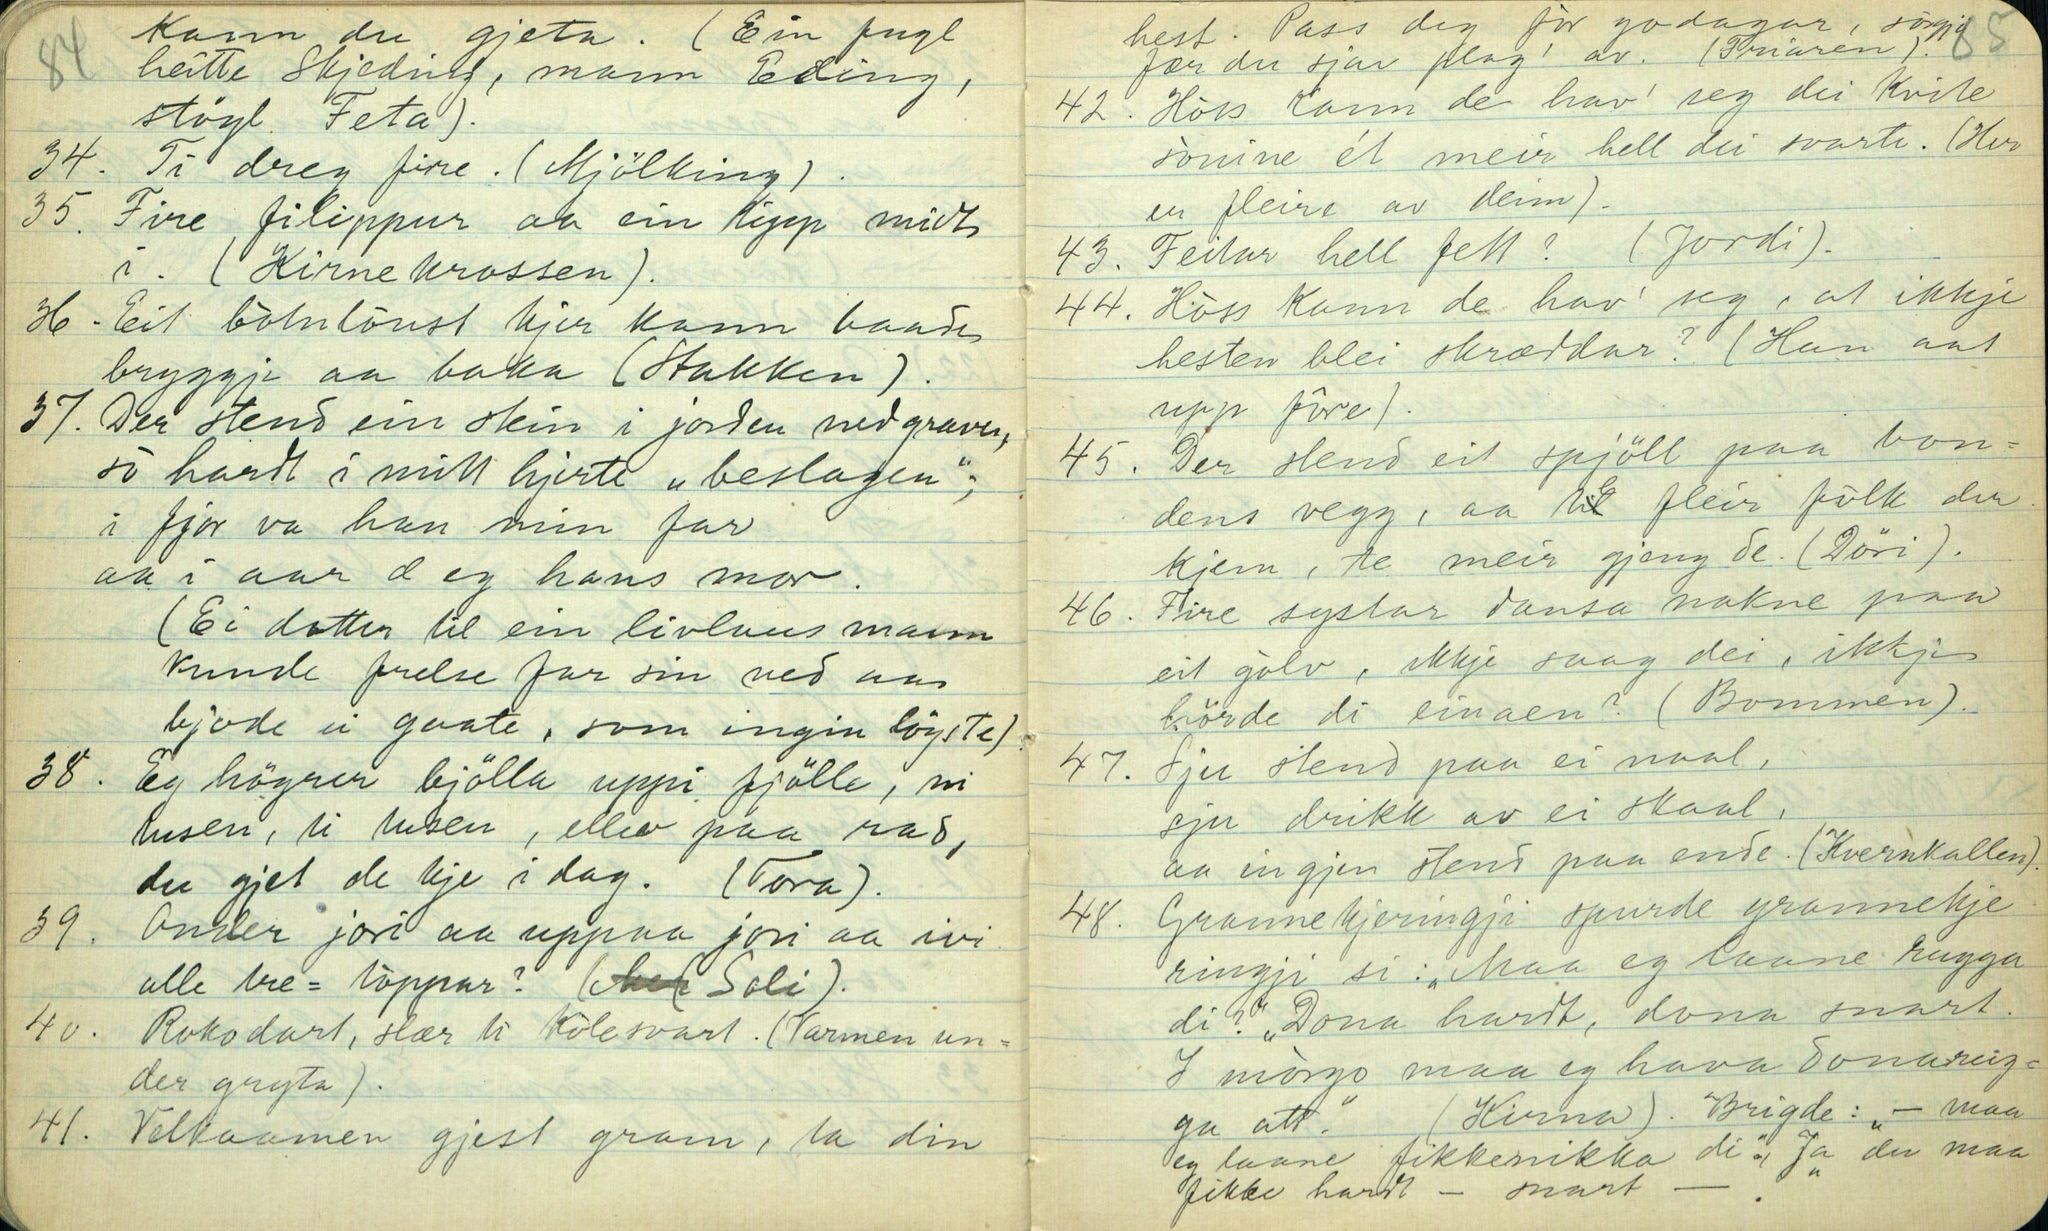 84
kann du gjeta. (Ein fugl
heitte Skjeding, mann Eding,
stögl Feta).
34. Ti dreg fire. (Mjölking).
35. Fire filippur aa ein tipp midt
i. (Kirnekrossen).
36. Eit botnlöust kjer kann baade
bryggje aa baka (Stakken).
37. Der stend ein stein i jorden nedgraven,
so hardt i mitt hjerte „beslagen";
i fjor va han min far
aa i aar æ eg hans mor.
(Ei dotter til ein livlaus mann
kunde frelse far sin ved aa
bjode ei gaate, som ingin löyste).
38. Eg högrer bjölla uppi fjölle, ni
tusen, ti tusen, ellev paa rad,
du gjet de kje i dag. (Tora).
39. Onder jori aa uppaa jori aa ivi
alle tre=töppar? (Soli).
40. Rokodart, slær ti kolesvart. (Varmen un=
der gryta).
41. Velkaamen gjest gram, ta din
85
hest. Pass deg för godagar, sörgje
fær du sjav plag' av. (Friaren).
42. Höss kann de hav' seg dei kvite
souine ét meir hell dei svarte. (Her
er fleire av deim).
43. Feitar hell fett? (Jordi).
44. Höss kann de hav' seg, at ikkje
hesten blei skræddar? (Han aat
upp före).
45. Der stend eit spjöll paa bon=
dens vegg, aa fleir fölk der
kjem, te meir gjeng de. (Döri).
46. Fire systar dansa nakne paa
eit golv, ikkje saag dei, ikkje
hörde di einaen? (Bommen).
47. Sju stend paa ei naal,
sju drikk av ei skaal,
aa ingjen stend paa ende. (Kvernkallen).
48. Grannekjeringji spurde grannekje
ringji si: „Maa eg laane rugga
di?" „Dona hardt, dona snart.
I mörgo maa eg hava donareig=
ga att." (Kirna). Brigde: „— maa
eg laane fikkenikka di". „Ja du maa
fikke hardt — snart — ."